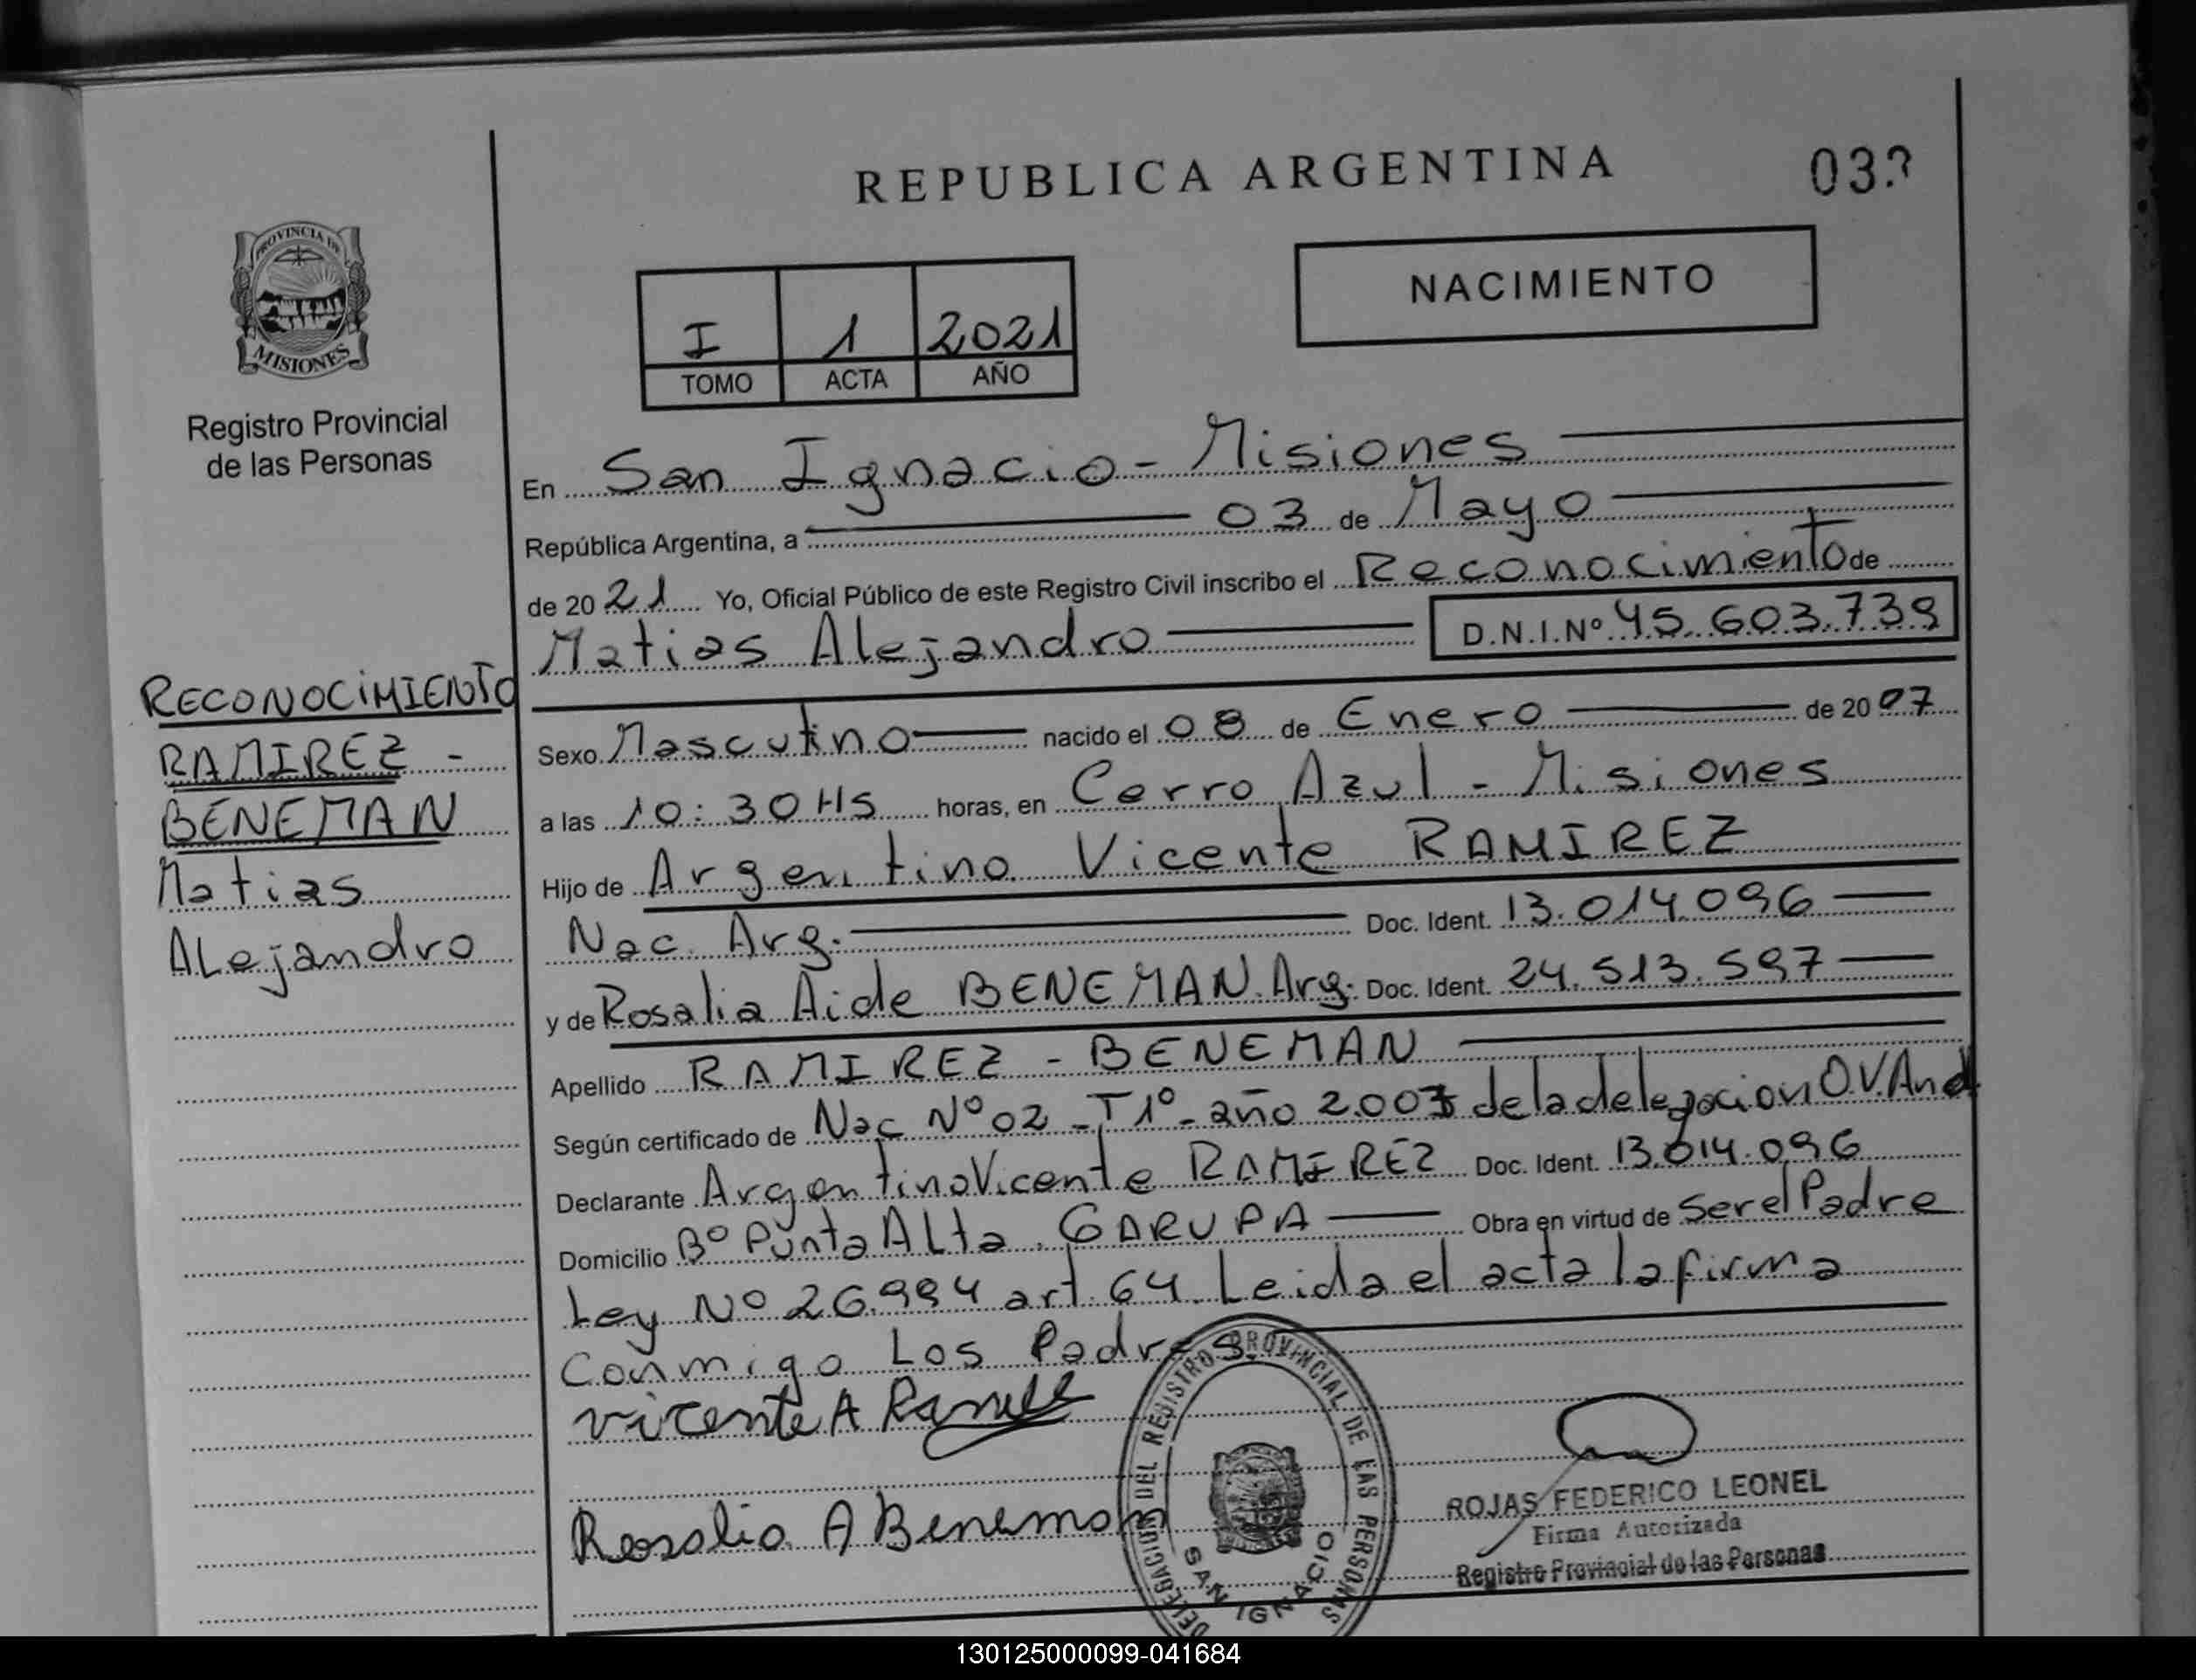 REPUBLICA ARGENTINA
PROVINCIA DE
MISIONES
Registro Provincial
de las Personas
NACIMIENTO
I 1 2021
TOMO ACTA AÑO
En San Ignacio - Misiones
República Argentina, a 03 de Mayo
de 2021 Yo, Oficial Público de este Registro Civil inscribo el Reconocimiento de
Matias Alejandro D.N.I.Nº 45.603.739
RECONOCIMIENTO
RAMIREZ -
BENEMAN
Matias
ALejandro
Sexo Masculino nacido el 08 de Enero de 2007
a las 10:30 Hs horas, en Cerro Azul - Misiones
Hijo de Argentino Vicente RAMIREZ
Nac. Arg. Doc. Ident. 13.014.096
y de Rosalia Aide BENEMAN. Arg. Doc. Ident. 24.513.597
Apellido RAMIREZ - BENEMAN
Según certificado de Nac Nº 02 - T 1º - año 2.007 de la delegacion O.V. And
Declarante Argentino Vicente RAMIREZ Doc. Ident. 13.014.096
Domicilio Bº Punta ALta. GARUPA Obra en virtud de Ser el Padre
Ley Nº 26.994 art. 64. Leida el acta la firma
Conmigo Los Padres
Vicente A Ramirez
Rosalia A Beneman
DELEGACION DEL REGISTRO PROVINCIAL DE LAS PERSONAS
SAN IGNACIO
ROJAS FEDERICO LEONEL
Firma Autorizada
Registro Provincial de las Personas
130125000099-041684